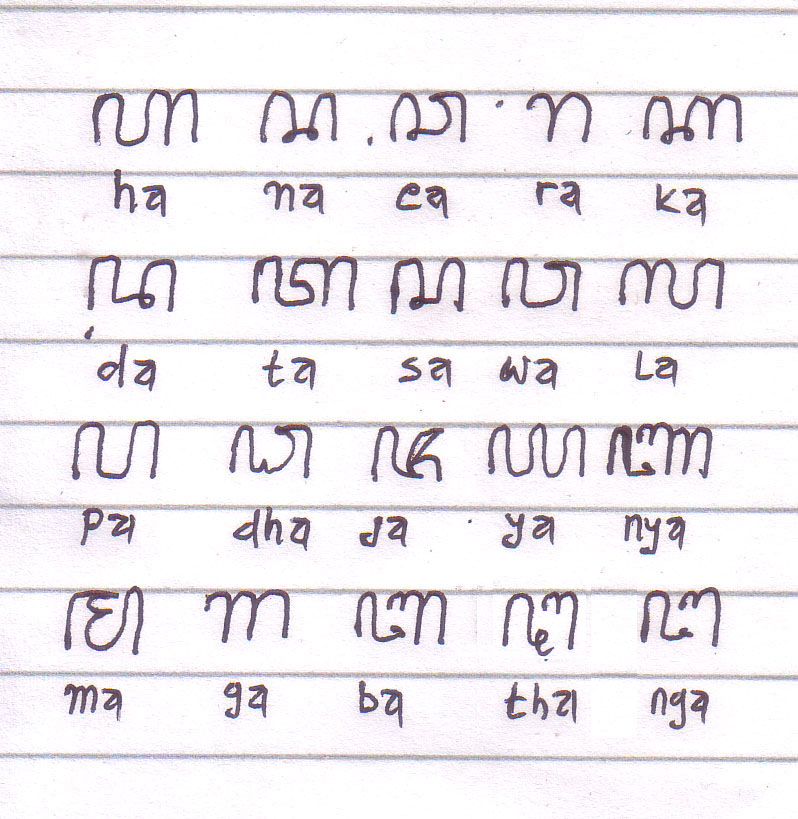 ꦲ ꦤ ꦕ ꦫ ꦏ
ha na ca ra ka
ꦢ ꦠ ꦱ ꦮ ꦭ
da ta sa wa La
ꦥ ꦝ ꦗ ꦪ ꦚ
pa dha Ja ya nya
ꦩ ꦒ ꦧ ꦛ ꦔ
ma ga ba tha nga